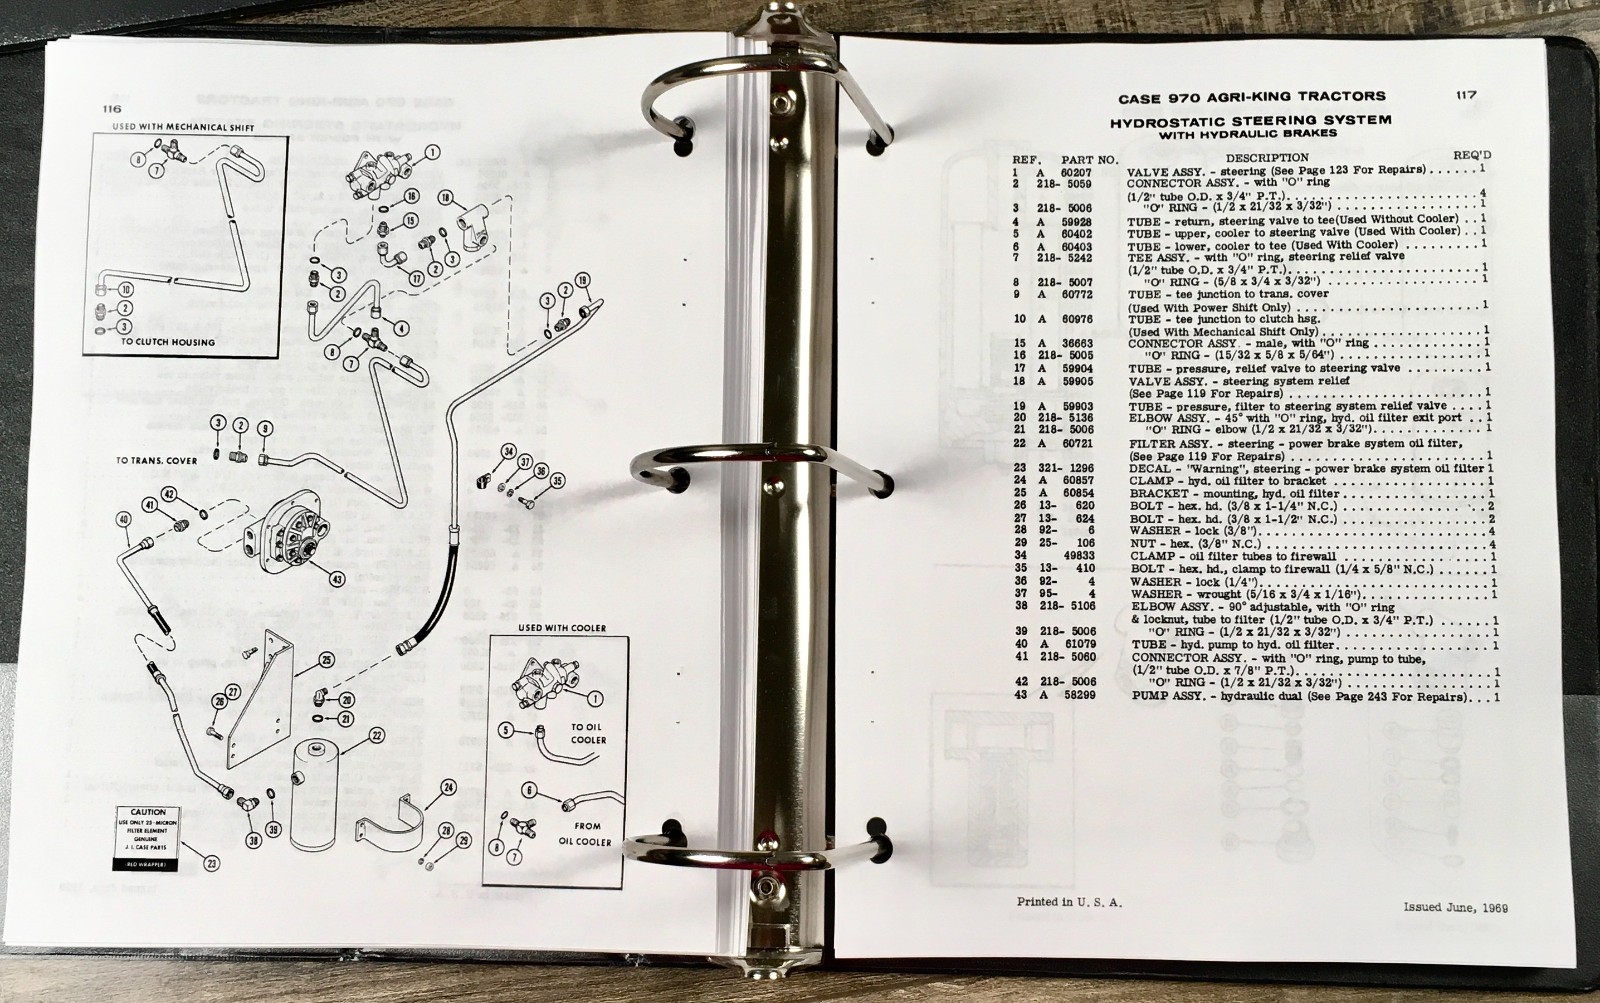 116
USED WITH MECHANICAL SHIFT
8
7
10
2
3
TO CLUTCH HOUSING
1
16
15
17
18
2
3
3
2
4
8
7
3
2
19
3
2
9
TO TRANS. COVER
34
37
36
35
42
41
40
43
25
27
26
20
21
22
24
28
29
38
39
CAUTION
USE ONLY 25-MICRON
FILTER ELEMENT
GENUINE
J. I. CASE PARTS
(RED WRAPPER)
23
USED WITH COOLER
1
5
TO OIL
COOLER
6
8
7
FROM
OIL COOLER
CASE 970 AGRI-KING TRACTORS 117
HYDROSTATIC STEERING SYSTEM
WITH HYDRAULIC BRAKES
REF. PART NO. DESCRIPTION REQ'D
1 A 60207 VALVE ASSY. - steering (See Page 123 For Repairs) . . . . . . 1
2 218- 5059 CONNECTOR ASSY. - with "O" ring
(1/2" tube O.D. x 3/4" P.T.) . . . . . . 4
3 218- 5006 "O" RING - (1/2 x 21/32 x 3/32") . . . . . . 1
4 A 59928 TUBE - return, steering valve to tee(Used Without Cooler) . . 1
5 A 60402 TUBE - upper, cooler to steering valve (Used With Cooler) . . 1
6 A 60403 TUBE - lower, cooler to tee (Used With Cooler) . . . . . . 1
7 218- 5242 TEE ASSY. - with "O" ring, steering relief valve
(1/2" tube O.D. x 3/4" P.T.) . . . . . . 1
8 218- 5007 "O" RING - (5/8 x 3/4 x 3/32") . . . . . . 1
9 A 60772 TUBE - tee junction to trans. cover
(Used With Power Shift Only) . . . . . . 1
10 A 60976 TUBE - tee junction to clutch hsg.
(Used With Mechanical Shift Only) . . . . . . 1
15 A 36663 CONNECTOR ASSY. - male, with "O" ring . . . . . . 1
16 218- 5005 "O" RING - (15/32 x 5/8 x 5/64") . . . . . . 1
17 A 59904 TUBE - pressure, relief valve to steering valve . . . . . . 1
18 A 59905 VALVE ASSY. - steering system relief
(See Page 119 For Repairs) . . . . . . 1
19 A 59903 TUBE - pressure, filter to steering system relief valve . . . . 1
20 218- 5136 ELBOW ASSY. - 45° with "O" ring, hyd. oil filter exit port . . 1
21 218- 5006 "O" RING - elbow (1/2 x 21/32 x 3/32") . . . . . . 1
22 A 60721 FILTER ASSY. - steering - power brake system oil filter,
(See Page 119 For Repairs) . . . . . . 1
23 321- 1296 DECAL - "Warning", steering - power brake system oil filter 1
24 A 60857 CLAMP - hyd. oil filter to bracket . . . . . . 1
25 A 60854 BRACKET - mounting, hyd. oil filter . . . . . . 1
26 13- 620 BOLT - hex. hd. (3/8 x 1-1/4" N.C.) . . . . . . 2
27 13- 624 BOLT - hex. hd. (3/8 x 1-1/2" N.C.) . . . . . . 2
28 92- 6 WASHER - lock (3/8") . . . . . . 4
29 25- 106 NUT - hex. (3/8" N.C.) . . . . . . 4
34 49833 CLAMP - oil filter tubes to firewall . . . . . . 1
35 13- 410 BOLT - hex. hd., clamp to firewall (1/4 x 5/8" N.C.) . . . . . . 1
36 92- 4 WASHER - lock (1/4") . . . . . . 1
37 95- 4 WASHER - wrought (5/16 x 3/4 x 1/16") . . . . . . 1
38 218- 5106 ELBOW ASSY. - 90° adjustable, with "O" ring
& locknut, tube to filter (1/2" tube O.D. x 3/4" P.T.) . . . . . . 1
39 218- 5006 "O" RING - (1/2 x 21/32 x 3/32") . . . . . . 1
40 A 61079 TUBE - hyd. pump to hyd. oil filter . . . . . . 1
41 218- 5060 CONNECTOR ASSY. - with "O" ring, pump to tube,
(1/2" tube O.D. x 7/8" P.T.) . . . . . . 1
42 218- 5006 "O" RING - (1/2 x 21/32 x 3/32") . . . . . . 1
43 A 58299 PUMP ASSY. - hydraulic dual (See Page 243 For Repairs) . . . 1
Printed in U. S. A.
Issued June, 1969